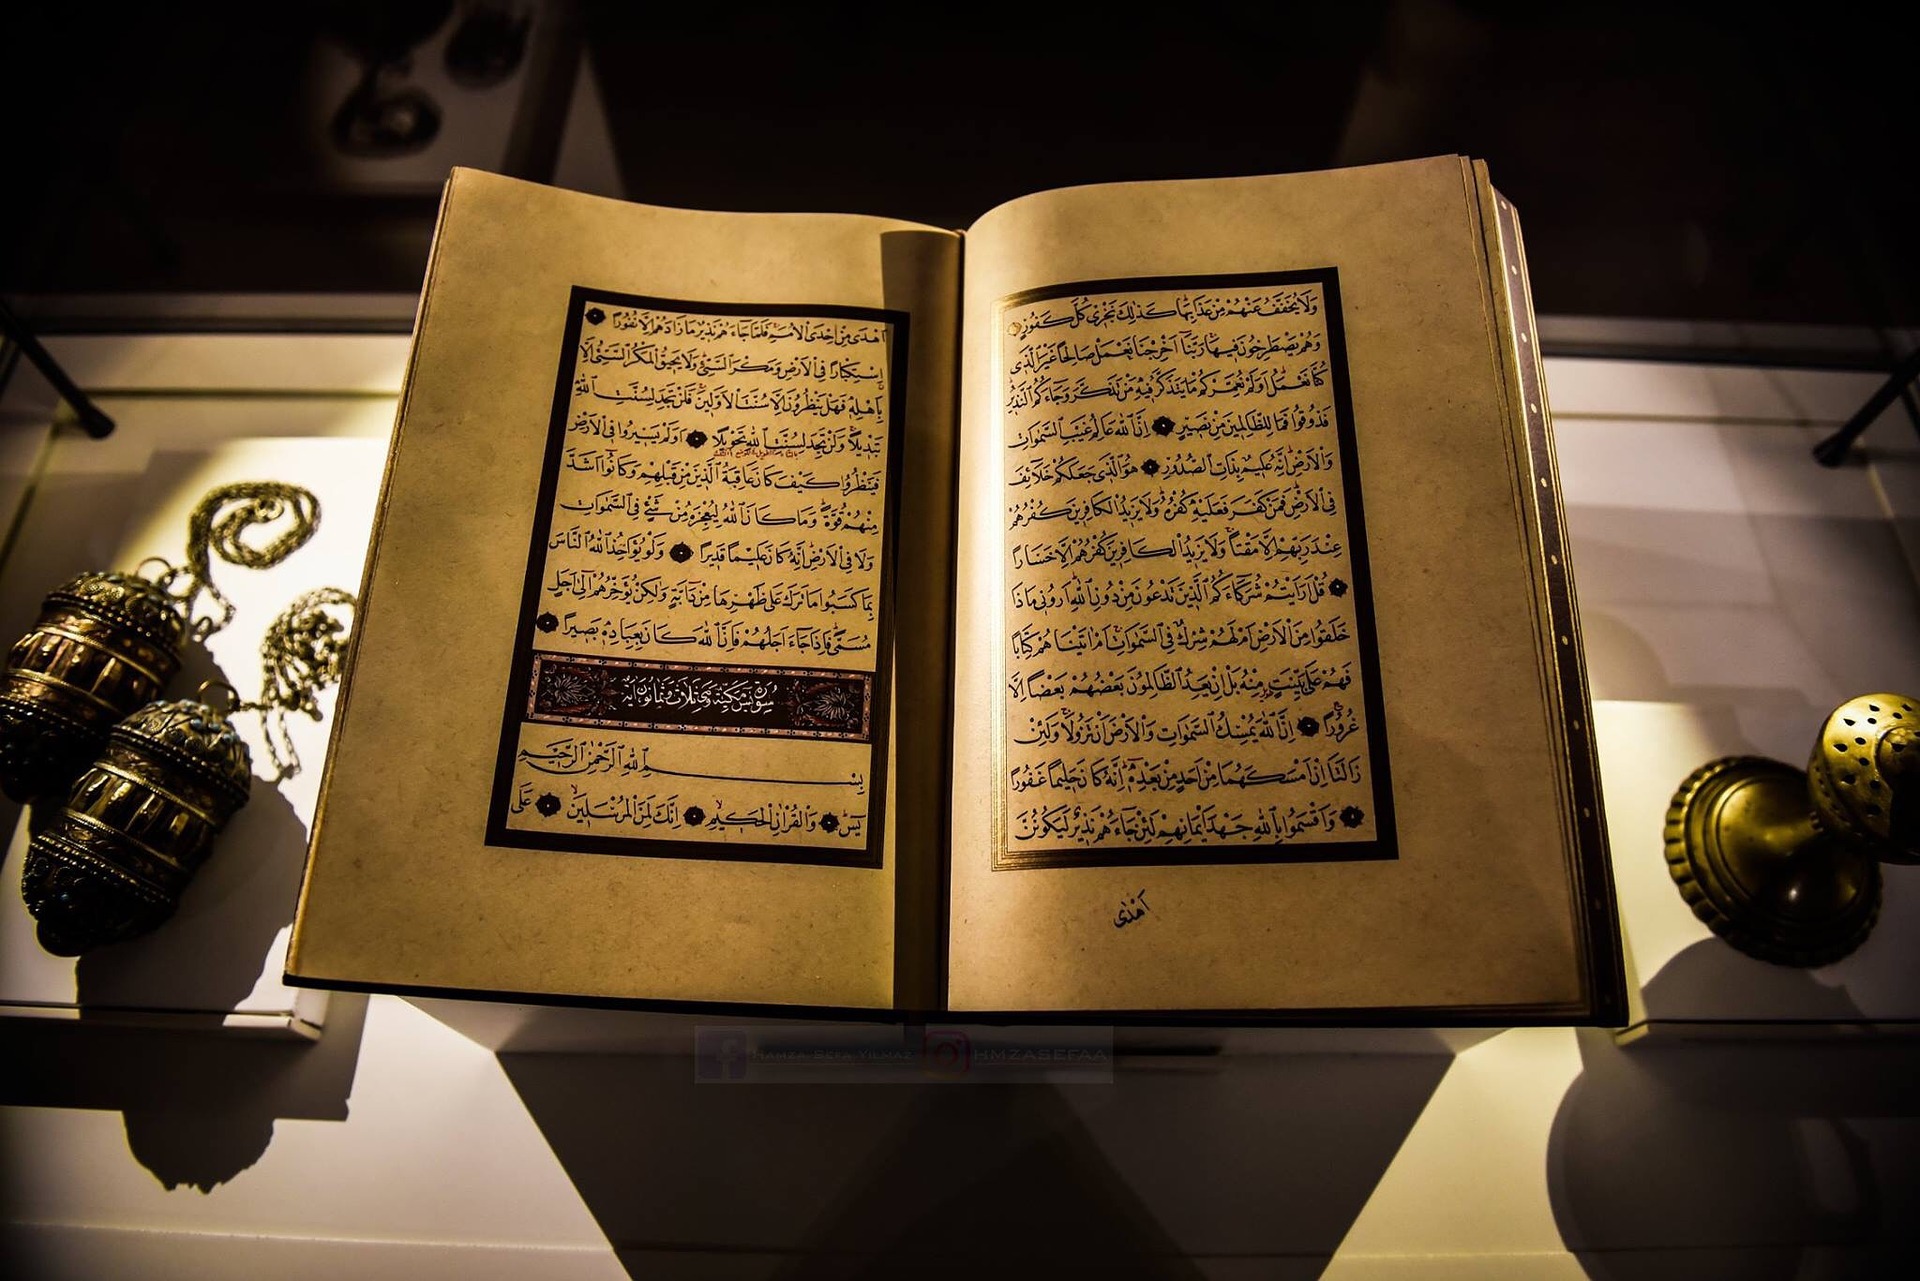 وَلَا يُخَفَّفُ عَنْهُمْ مِنْ عَذَابِهَا كَذٰلِكَ نَجْزِى كُلَّ كَفُورٍ
وَهُمْ يَصْطَرِخُونَ فِيهَا رَبَّنَا اَخْرِجْنَا نَعْمَلْ صَالِحًا غَيْرَ الَّذِى
كُنَّا نَعْمَلُ اَوَلَمْ نُعَمِّرْكُمْ مَا يَتَذَكَّرُ فِيهِ مَنْ تَذَكَّرَ وَجَاءَكُمُ النَّذِيرُ
فَذُوقُوا فَمَا لِلظَّالِمِينَ مِنْ نَصِيرٍ اِنَّ اللّٰهَ عَالِمُ غَيْبِ السَّمٰوَاتِ
وَالْاَرْضِ اِنَّهُ عَلِيمٌ بِذَاتِ الصُّدُورِ هُوَ الَّذِى جَعَلَكُمْ خَلَائِفَ
فِى الْاَرْضِ فَمَنْ كَفَرَ فَعَلَيْهِ كُفْرُهُ وَلَا يَزِيدُ الْكَافِرِينَ كُفْرُهُمْ
عِنْدَ رَبِّهِمْ اِلَّا مَقْتًا وَلَا يَزِيدُ الْكَافِرِينَ كُفْرُهُمْ اِلَّا خَسَارًا
قُلْ اَرَاَيْتُمْ شُرَكَاءَكُمُ الَّذِينَ تَدْعُونَ مِنْ دُونِ اللّٰهِ اَرُونِى مَاذَا
خَلَقُوا مِنَ الْاَرْضِ اَمْ لَهُمْ شِرْكٌ فِى السَّمٰوَاتِ اَمْ اٰتَيْنَاهُمْ كِتَابًا
فَهُمْ عَلٰى بَيِّنَتٍ مِنْهُ بَلْ اِنْ يَعِدُ الظَّالِمُونَ بَعْضُهُمْ بَعْضًا اِلَّا
غُرُورًا اِنَّ اللّٰهَ يُمْسِكُ السَّمٰوَاتِ وَالْاَرْضَ اَنْ تَزُولَا وَلَئِنْ
زَالَتَا اِنْ اَمْسَكَهُمَا مِنْ اَحَدٍ مِنْ بَعْدِهِ اِنَّهُ كَانَ حَلِيمًا غَفُورًا
وَاَقْسَمُوا بِاللّٰهِ جَهْدَ اَيْمَانِهِمْ لَئِنْ جَاءَهُمْ نَذِيرٌ لَيَكُونُنَّ
اَهْدٰى
اَهْدٰى مِنْ اِحْدَى الْاُمَمِ فَلَمَّا جَاءَهُمْ نَذِيرٌ مَا زَادَهُمْ اِلَّا نُفُورًا
اِسْتِكْبَارًا فِى الْاَرْضِ وَمَكْرَ السَّيِّئِ وَلَا يَحِيقُ الْمَكْرُ السَّيِّئُ اِلَّا
بِاَهْلِهِ فَهَلْ يَنْظُرُونَ اِلَّا سُنَّتَ الْاَوَّلِينَ فَلَنْ تَجِدَ لِسُنَّتِ اللّٰهِ
تَبْدِيلًا وَلَنْ تَجِدَ لِسُنَّتِ اللّٰهِ تَحْوِيلًا اَوَلَمْ يَسِيرُوا فِى الْاَرْضِ
فَيَنْظُرُوا كَيْفَ كَانَ عَاقِبَةُ الَّذِينَ مِنْ قَبْلِهِمْ وَكَانُوا اَشَدَّ
مِنْهُمْ قُوَّةً وَمَا كَانَ اللّٰهُ لِيُعْجِزَهُ مِنْ شَىْءٍ فِى السَّمٰوَاتِ
وَلَا فِى الْاَرْضِ اِنَّهُ كَانَ عَلِيمًا قَدِيرًا وَلَوْ يُؤَاخِذُ اللّٰهُ النَّاسَ
بِمَا كَسَبُوا مَا تَرَكَ عَلٰى ظَهْرِهَا مِنْ دَابَّةٍ وَلٰكِنْ يُؤَخِّرُهُمْ اِلٰى اَجَلٍ
مُسَمًّى فَاِذَا جَاءَ اَجَلُهُمْ فَاِنَّ اللّٰهَ كَانَ بِعِبَادِهِ بَصِيرًا
سورة يس مكية وهى ثلاث وثمانون اية
بِسْمِ اللّٰهِ الرَّحْمٰنِ الرَّحِيمِ
يٰسٓ وَالْقُرْاٰنِ الْحَكِيمِ اِنَّكَ لَمِنَ الْمُرْسَلِينَ عَلٰى
HAMZA SEFA YILMAZ HMZASEFAA